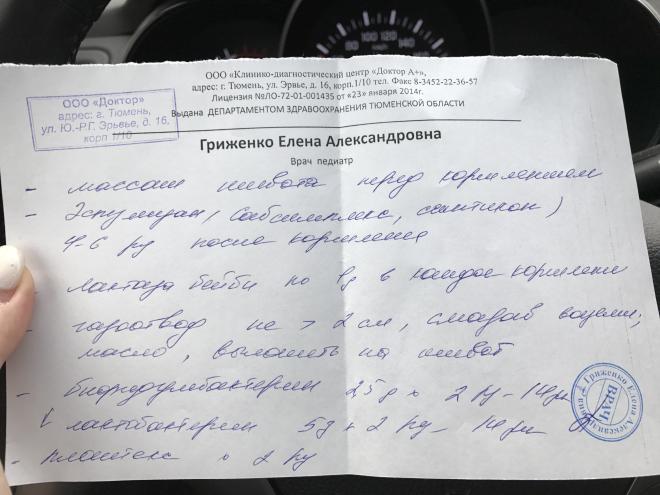 ООО «Клинико-диагностический центр «Доктор А+»,
адрес: г. Тюмень, ул. Эрвье, д. 16, корп.1/10 тел. Факс 8-3452-22-36-57
Лицензия №ЛО-72-01-001435 от «23» января 2014г.
Выдана ДЕПАРТАМЕНТОМ ЗДРАВООХРАНЕНИЯ ТЮМЕНСКОЙ ОБЛАСТИ
ООО «Доктор»
адрес: г. Тюмень,
ул. Ю.-Р.Г. Эрвье, д. 16,
корп 1/10
Гриженко Елена Александровна
Врач педиатр
- массаж живота перед кормлением
- Эспумизан (Сабсимплекс, симтикон)
4-6 р/д после кормления
- лактаза бейби по в каждое кормлени
- газоотвод не > 2 см, смазав вазелин;
масло, выложить на живот
- бифидумбактерин 2,5 д x 2 р/д - 14 дн
лактобактерин 5 д x 2 р/д - 14 дн
- плантекс x 2 р/д
Гриженко Елена Александровна
ВРАЧ
80 100 120 140